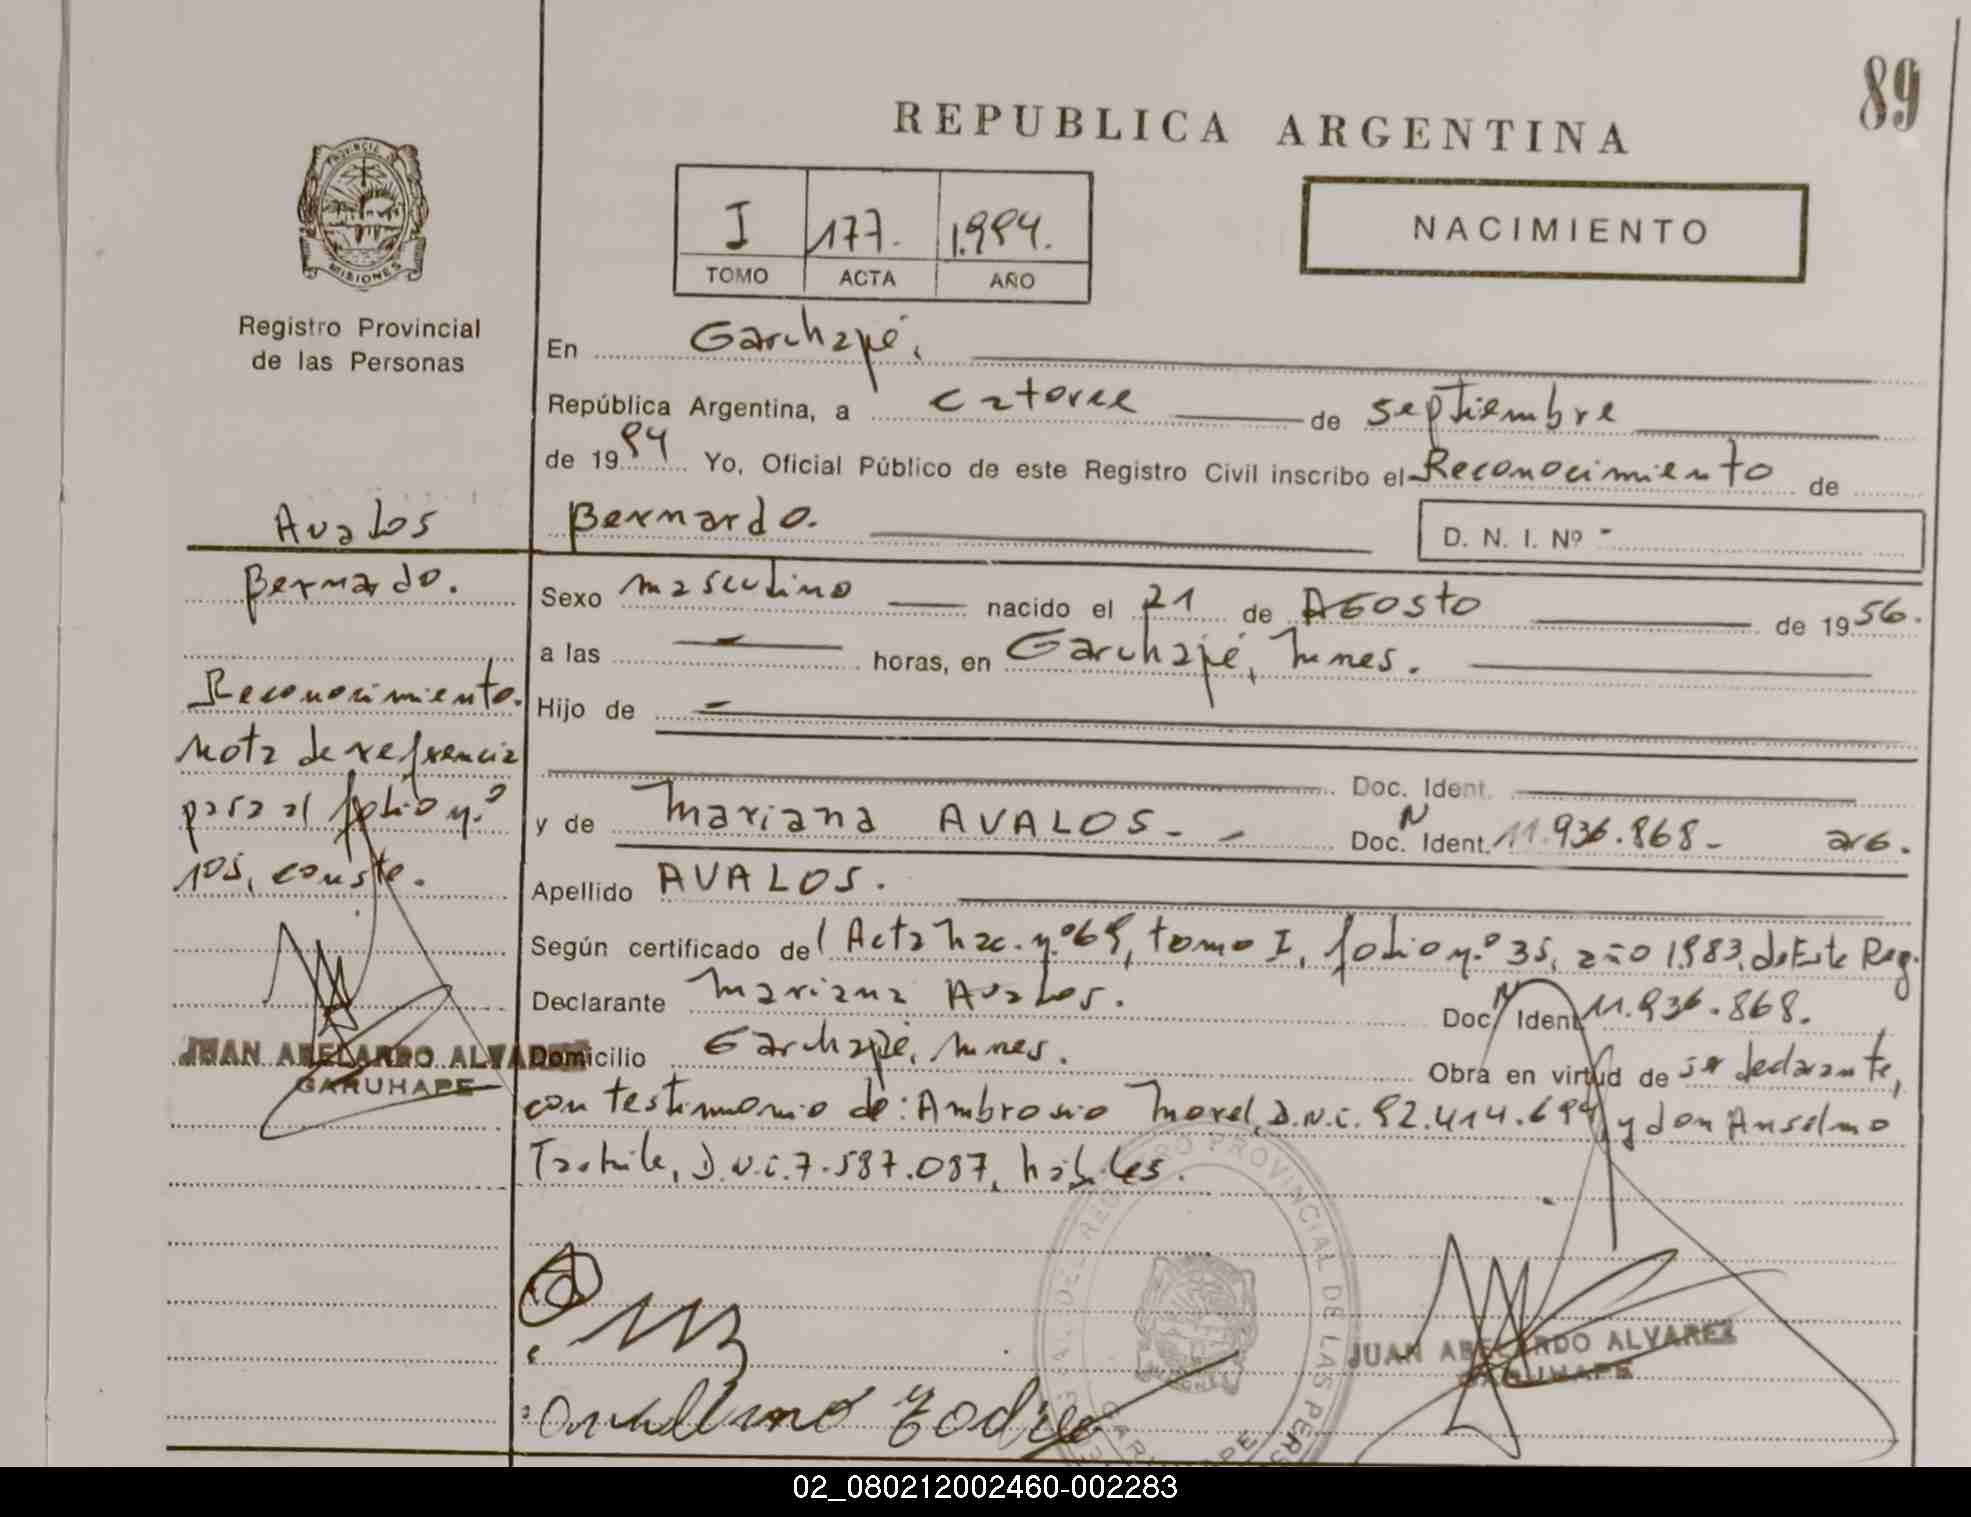 89
REPUBLICA ARGENTINA
PROVINCIA DE
MISIONES
I 177. 1.994.
TOMO ACTA AÑO
NACIMIENTO
Registro Provincial
de las Personas
En Garuhapé,
República Argentina, a catorce de septiembre
de 1994 Yo, Oficial Público de este Registro Civil inscribo el Reconocimiento de
Bernardo.
D. N. I. Nº -
Avalos
Bernardo.
Reconocimiento.
Nota de referencia
para al folio n.º
105, conste.
JUAN ABELARDO ALVAREZ
GARUHAPE
Sexo masculino nacido el 21 de AGosto de 1956.
a las horas, en Garuhapé, Mnes.
Hijo de -
Doc. Ident.
y de Mariana AVALOS - - Doc. N Ident. 11.936.868- arG.
Apellido AVALOS.
Según certificado del Acta Nac. n.º 69, tomo I, folio n.º 35, año 1.983, de Este Reg.
Declarante Mariana Avalos. Doc. N Ident. 11.936.868.
Domicilio Garuhapé, Mnes. Obra en virtud de ser declarante,
con testimonio de: Ambrosio Morel, D.N.i. 92.414.694 y don Anselmo
D.N.i. 7.587.087, hábiles.
REGISTRO PROVINCIAL DE LAS PERSONAS
MISIONES
GARUHAPE
JUAN ABELARDO ALVAREZ
GARUHAPE
02_080212002460-002283